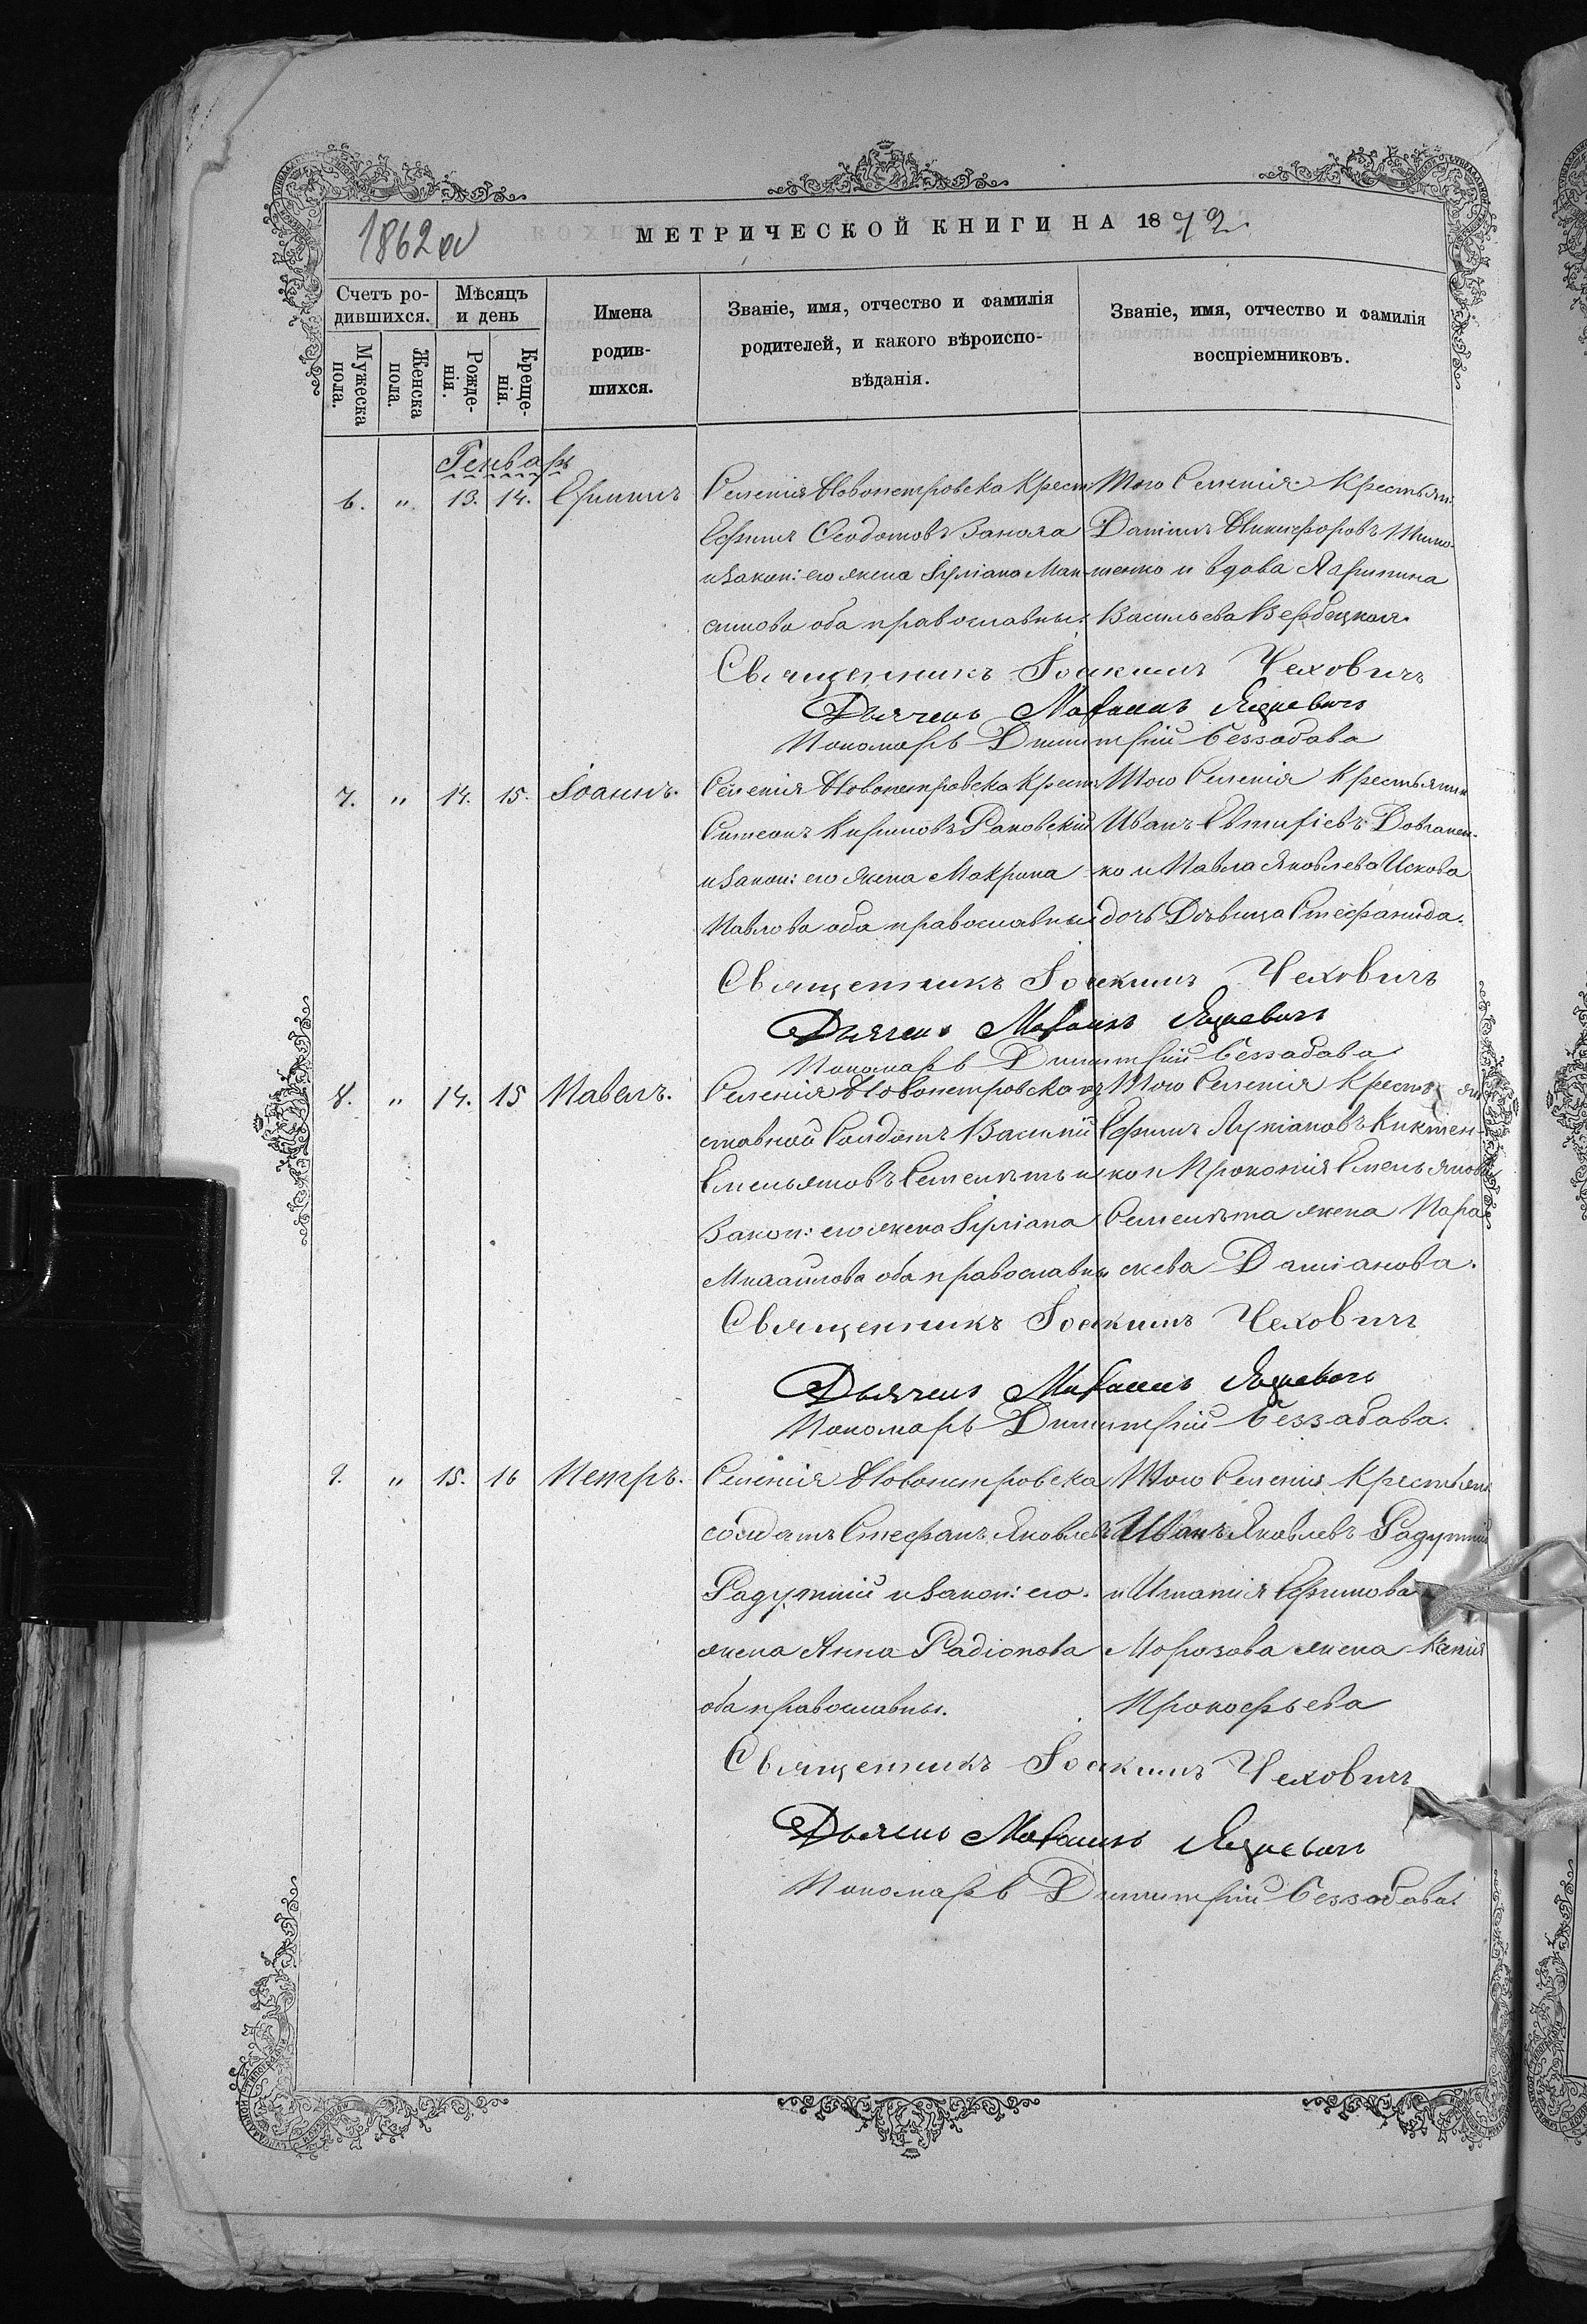 1862 об
МЕТРИЧЕСКОЙ КНИГИ НА 1872
Счетъ ро-
дившихся.
Мужеска пола.
Женска пола.
Мѣсяцъ
и день
Рожде-
нія.
Креще-
нія.
Имена
родив-
шихся.
Званіе, имя, отчество и фамилія
родителей, и какого вѣроиспо-
вѣданія.
Званіе, имя, отчество и фамилія
воспріемниковъ.
Генварь
6. " 13. 14. Ефимъ
Селенія Новопетровска Крест
Ефимъ Феодотовъ
и закон: его жена Іуліана Мак-
симова оба православны.
Того Селенія Крестьян:
Даніилъ Никифоровъ Тимо-
шенко и вдова Агрипина
Васильева Вербецкая.
Священникъ Іоакимъ Чеховичъ
Дьячекъ Михаилъ Яцкевичъ
Пономарь Димитрій Беззабава
7. " 14. 15. Іоаннъ.
Селенія Новопетровска Крест
Симеонъ Кириловъ Раковскій
и закон: его жена Макрина
Павлова оба православны
Того Селенія Крестьянин
Иванъ Евтифіевъ Довганен-
ко и Павла Яковлева Искова
дочь Дѣвица Стефанида.
Священникъ Іоакимъ Чеховичъ
Дьячекъ Михаилъ Яцкевичъ
Пономарь Димитрій Беззабава
8. " 14. 15 Павелъ.
Селенія Новопетровска от
ставной Солдатъ Василій
Емельяновъ и
Закон: его жена Іуліана
Михайлова оба православны
Того Селенія Крестьян
Ефимъ Лукіановъ Киктен-
ко и Прокопія Емельянова
жена Пара-
скева Даміанова.
Священникъ Іоакимъ Чеховичъ
Дьячекъ Михаилъ Яцкевичъ
Пономарь Димитрій Беззабава.
9. " 15. 16 Петръ.
Селенія Новопетровска
солдатъ Стефанъ Яковлевъ
Радутній и закон: его
жена Анна Радіонова
оба православны.
Того Селенія Крестьян
Иванъ Яковлевъ Радутній
и Игнатія Ефимова
Морозова жена Ксенія
Прокофьева
Священникъ Іоакимъ Чеховичъ
Дьячекъ Михаилъ Яцкевичъ
Пономарь Димитрій Беззабава.